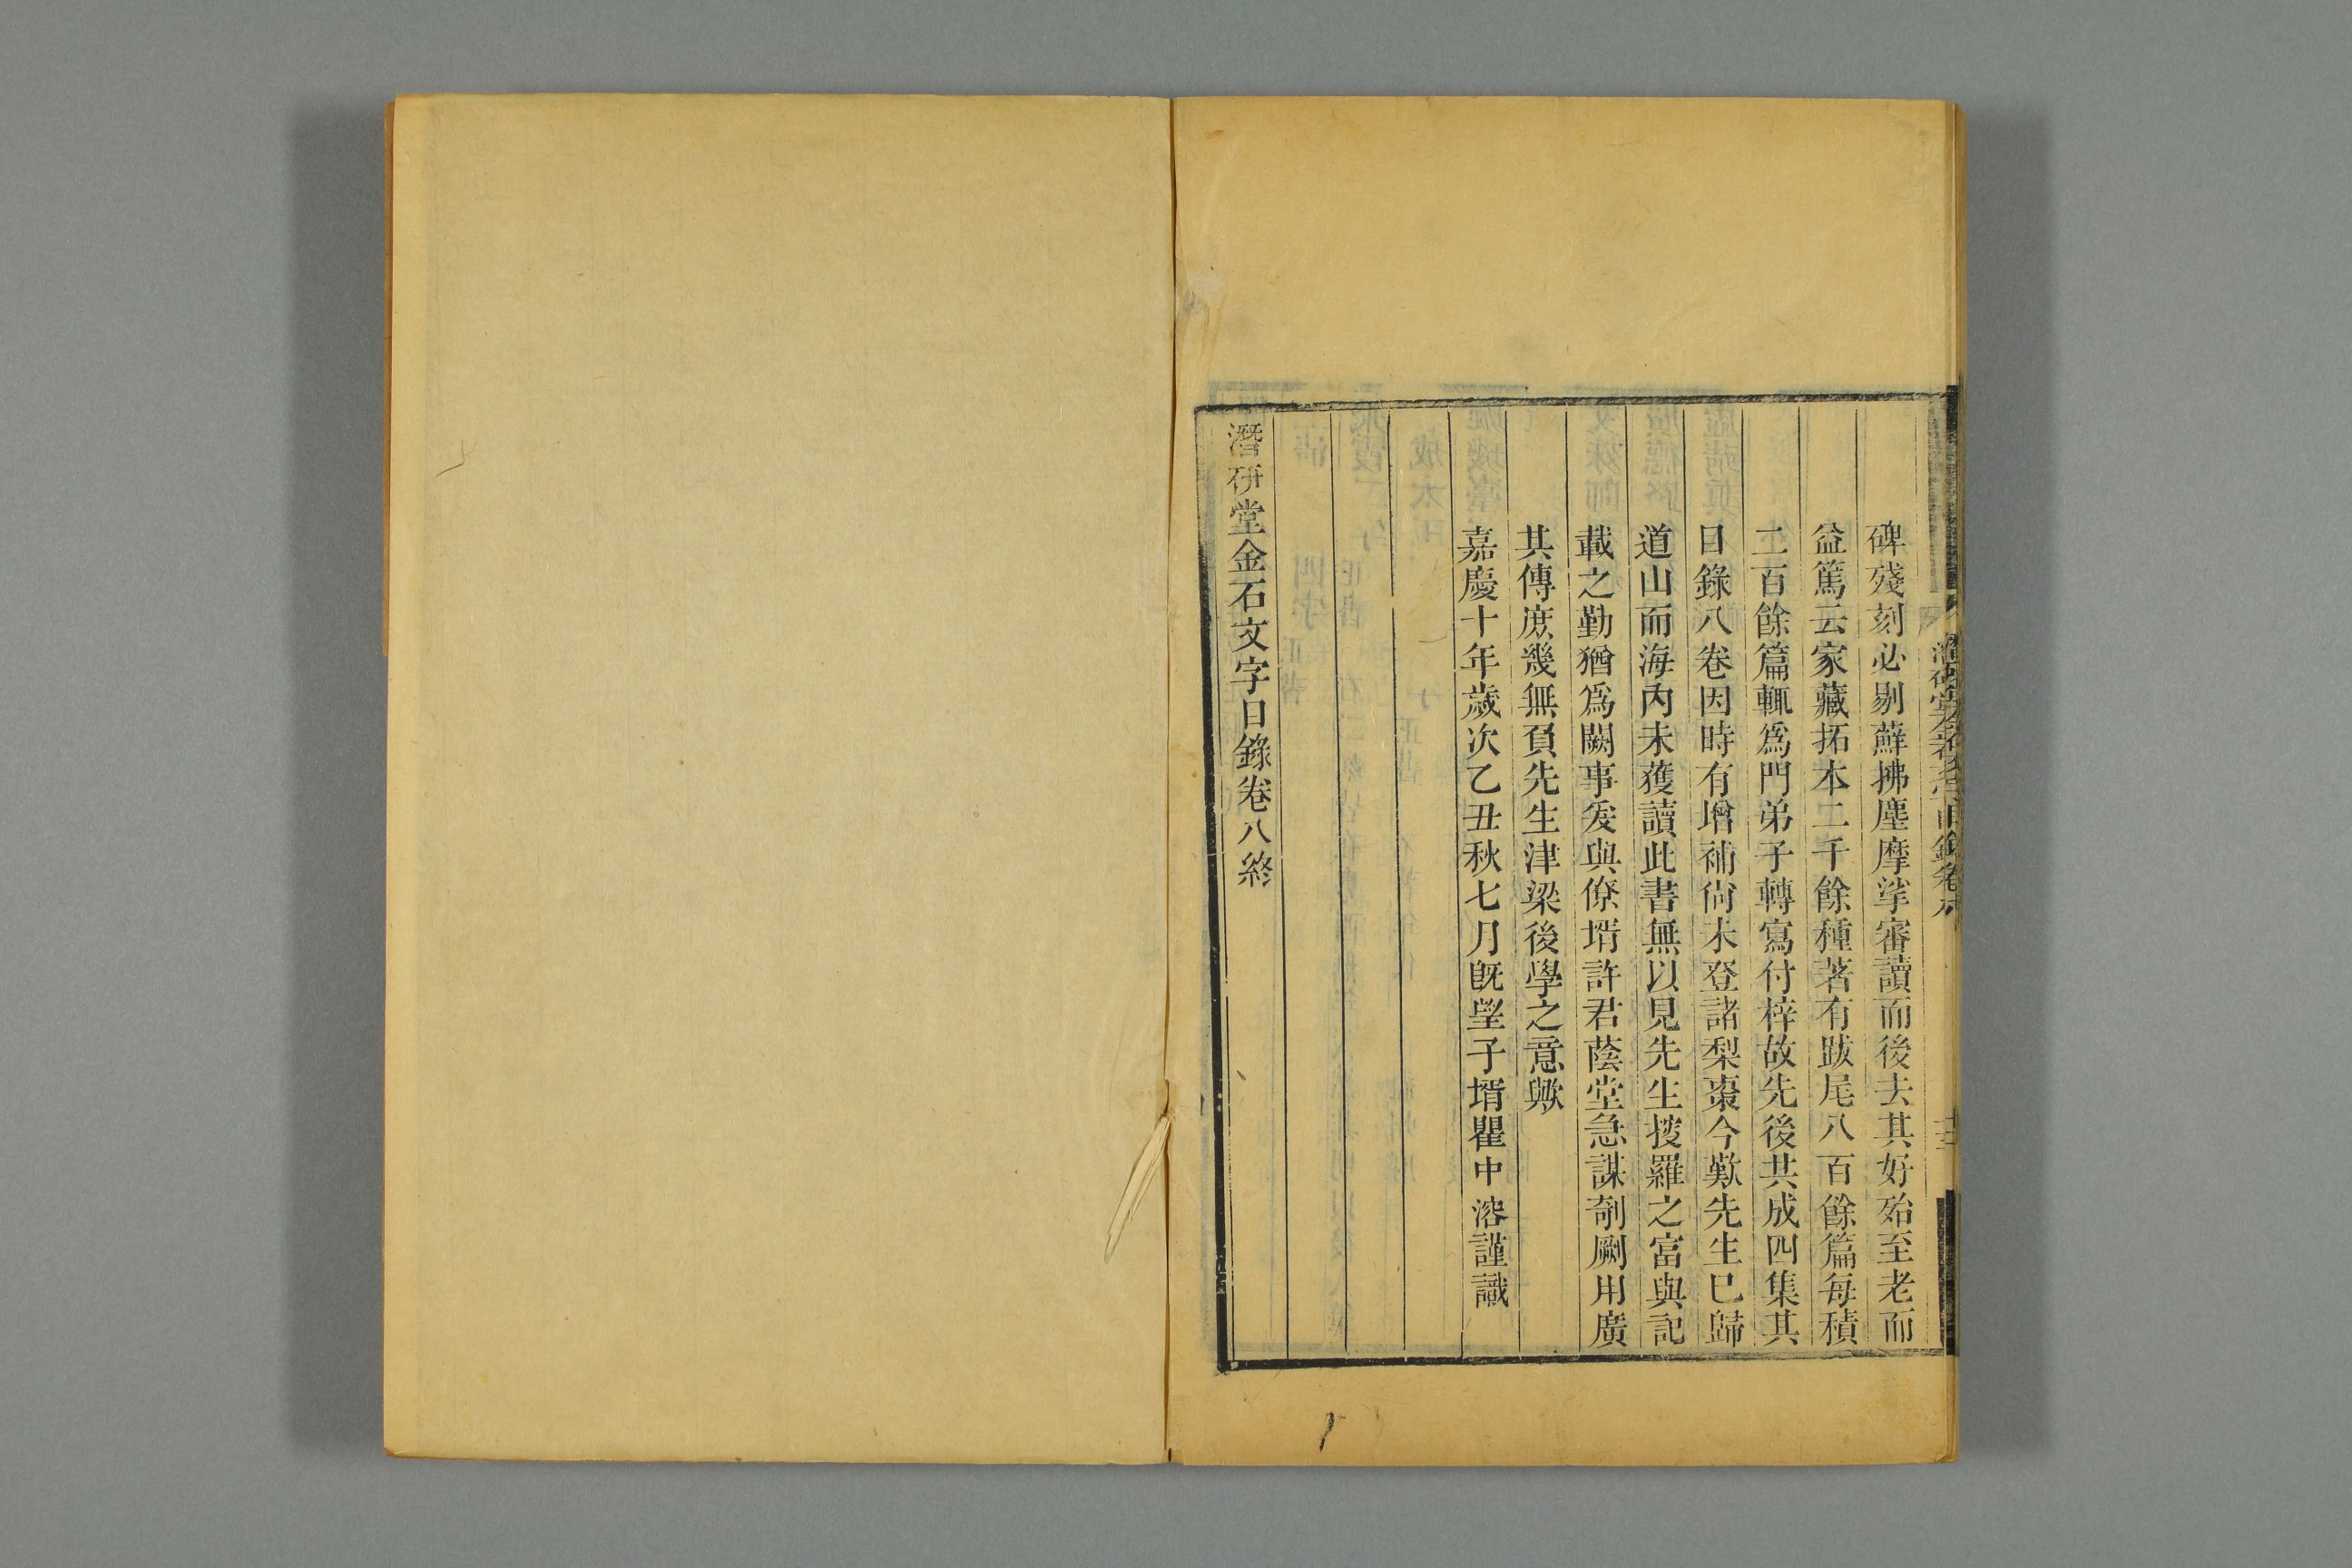 碑殘刻必剔蘚拂塵摩挲審讀而後去其好殆至老而
益篤云家藏拓本二千餘種著有跋尾八百餘篇每積
二百餘篇輒爲門弟子轉寫付梓故先後共成四集其
目錄八卷因時有增補尙未登諸梨棗今歎先生已歸
道山而海內未獲讀此書無以見先生搜羅之富與記
載之勤猶爲闕事爰與僚壻許君蔭堂急謀剞劂用廣
其傳庶幾無負先生津梁後學之意歟
嘉慶十年歲次乙丑秋七月旣望子壻瞿中溶謹識
潛硏堂金石文字目錄卷八終